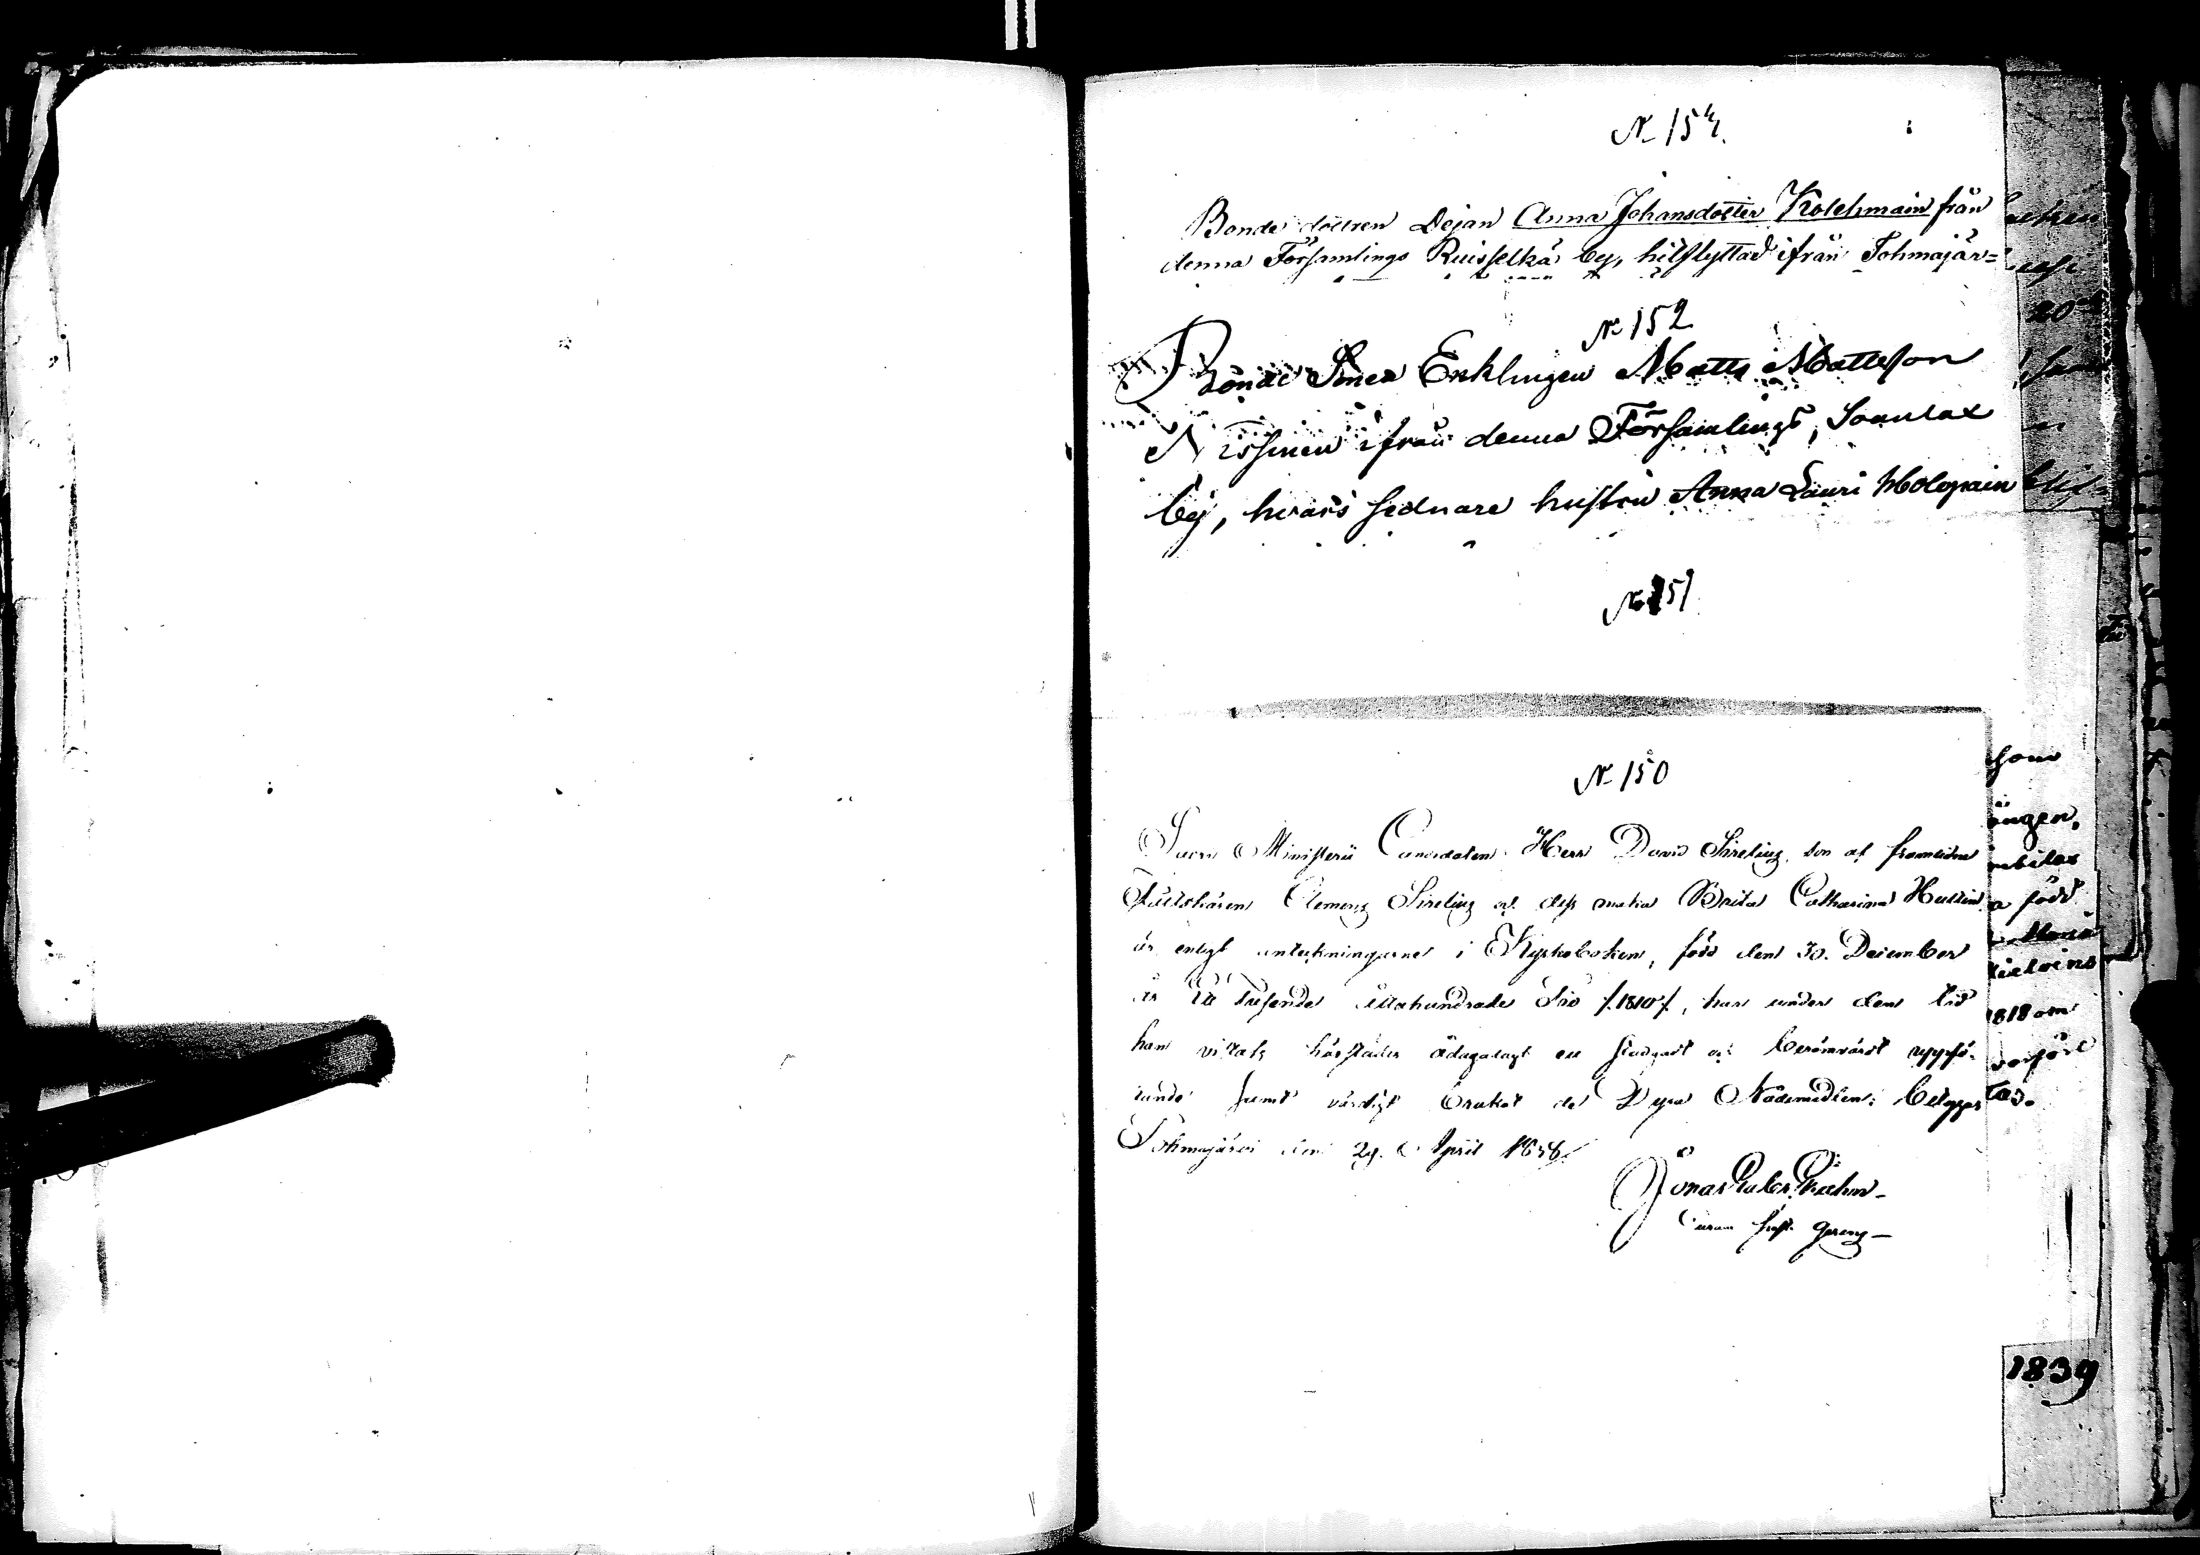 N 154.
Bonde dottren Dejan Anna Johansdotter Kolehmain från
denna Församlings Ruisselkä by, hitflyttad ifrån Tohmajär=
N 152
Bonde Sonen Enklingen Matts Mattsson
Nissinen ifrån denna Församlings, Soanlax
by, hvars sednare hustru Anna Lauri Holopain
No 151
N 150
Sacri Ministerii Candidaten Herr David Sireling, son af framledne
Clemens Sireling och dess maka Brita Catharina Hullin
är enligt anteckningarne i Kyrkoboken, född den 30. December
år Ett Tusende Åttahundrade Tio /:1810:/, har under den tid
han vistats härstädes ådagalagt en stadgadt och berömvärdt uppfö-
rande samt värdigt brukat de Dyra Nådemedlen; betygar
Tohmajärvi den 29. April 1838.
Jonas
som
ängen,
född
1818 om
1839